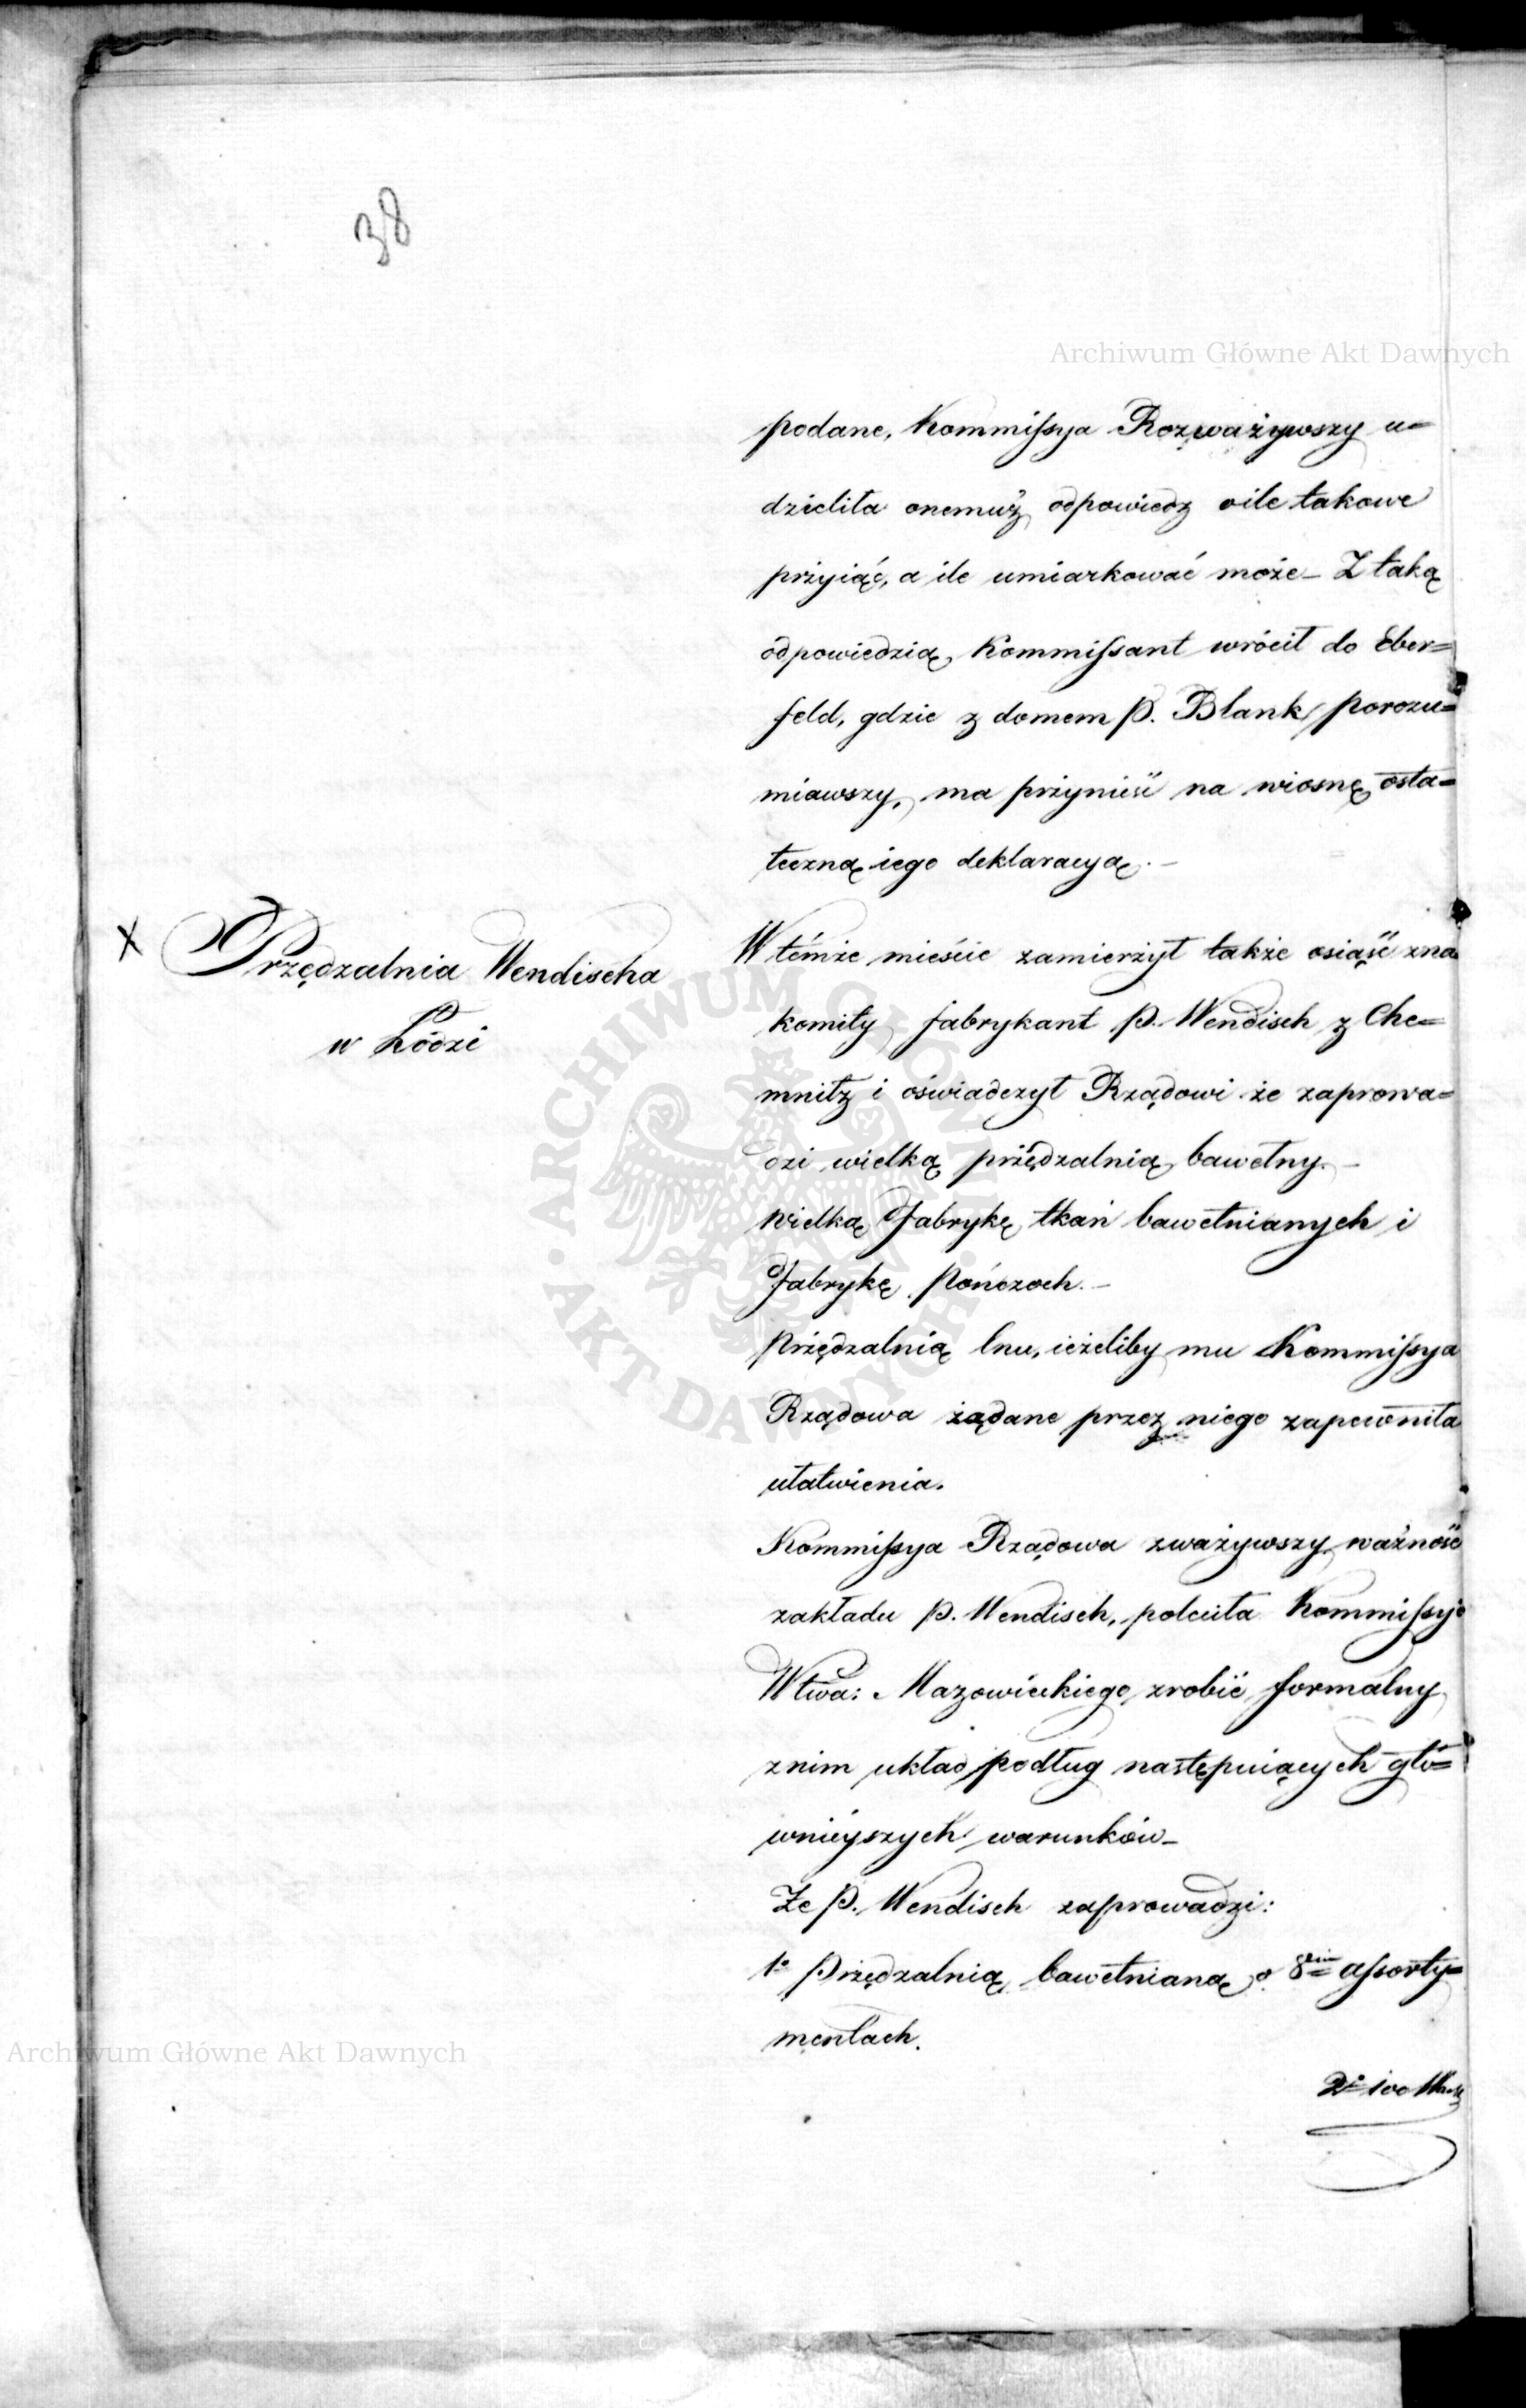 38
Archiwum Główne Akt Dawnych
podane, Kommissya Rozważywszy u=
dzieliła onemuż odpowiedz oile takowe
przyiąć, a ile umiarkować może – Z taką
odpowiedzią Kommissant wrócił do Eber=
feld, gdzie z domem P. Blank porozu=
miawszy, ma przynieść na wiosnę osta=
teczną iego deklaracyą. –
X Przędzalnia Wendischa
w Łodzi
W témże mieście zamierzył także osiąść zna
komity fabrykant P. Wendisch z Che=
mnitz i oświadczył Rządowi że zaprowa=
dzi wielką przędzalnią bawełny. –
Wielką Fabrykę tkań bawełnianych i
Fabrykę Pończoch. –
Przędzalnią lnu, ieżeliby mu Kommissya
Rządowa żądane przez niego zapewniła
ułatwienia.
Kommissya Rządowa zważywszy ważność
zakładu P. Wendisch, poleciła Kommissyi
Wtwa: Mazowieckiego zrobić formalny
znim układ podług następuiących głó=
wnieyszych warunków –
Że P. Wendisch zaprowadzi:
1o Przędzalnią bawełnianą o 8miu assorty=
mentach.
2o 100 Warsz
ARCHIWUM GŁÓWNE · AKT DAWNYCH ·
Archiwum Główne Akt Dawnych